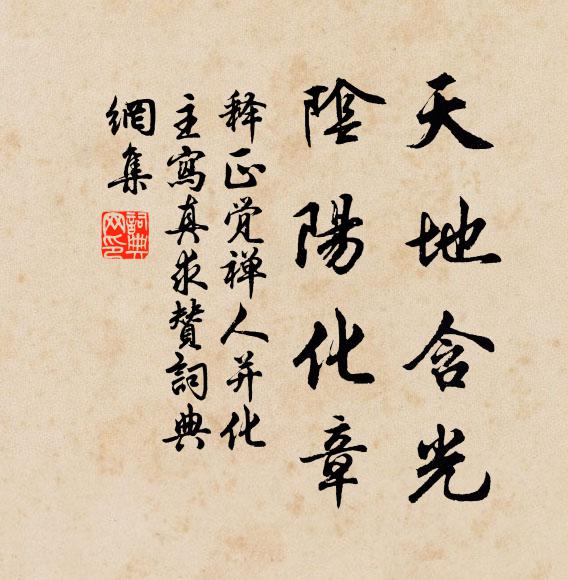 天地含光
陰陽化章
释正觉禅人并化
主寫真求贊詞典
網集
詞典網印